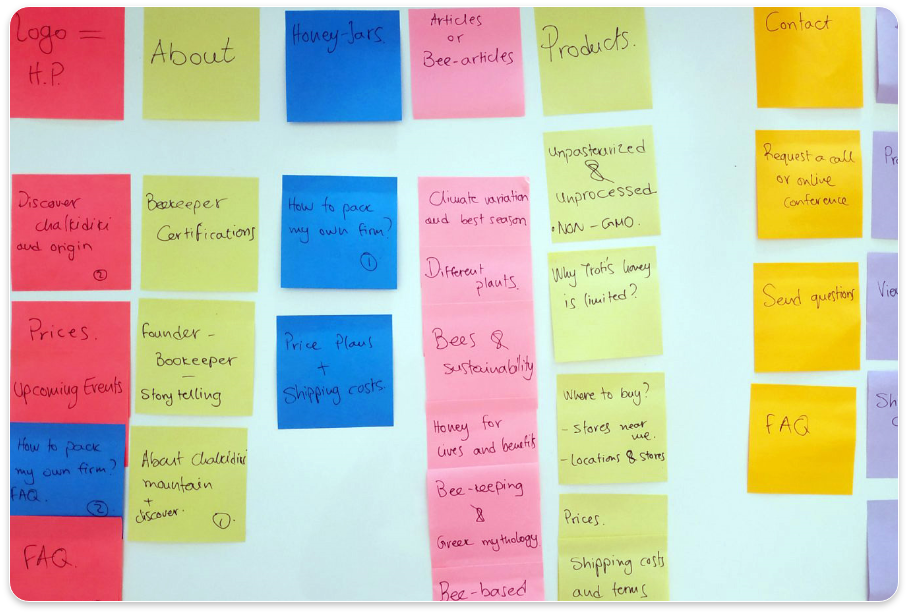 Logo =
H.P.
Discover
chalkidiki
and origin
2
Prices.
Upcoming Events
How to pack
my own firm?
FAQ.
2
FAQ.
About
Beekeeper
Certifications
Founder -
Bookeeper
-
Story telling
About Chalkidiki
mountain
+
discover.
1.
Honey-Jars.
How to pack
my own firm?
1
Price Plans
+
Shipping costs.
Articles
or
Bee-articles
Climate variation
and best season
Different
plants.
Bees &
sustainability
Honey for
lives and benefits
Bee-keeping
&
Greek mythology
Bee-based
Products.
Unpasteurized
&
Unprocessed
.NON-GMO.
Why Troti's honey
is limited?
Where to buy?
- Stores near
me.
- Locations & Stores
Prices.
Shipping costs
and terms
Contact
Request a call
or online
conference
Send questions
FAQ